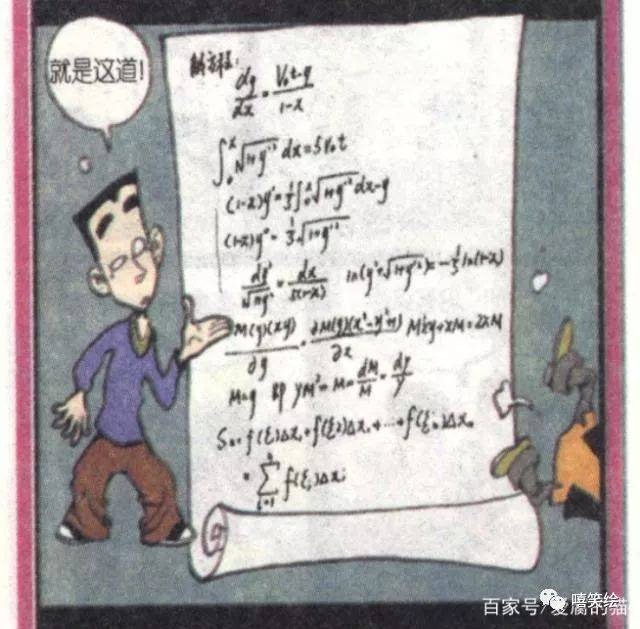 就是这道!
解方程:
dy/dx = (V₀t-y)/(1-x)
∫₀ˣ √(1+y'²) dx = 5V₀t
(1-x)y' = 1/5 ∫₀ˣ √(1+y'²) dx - y
(1-x)y'' = 1/5 √(1+y'²)
dy'/√(1+y'²) = dx/5(1-x) ln(y'+√(1+y'²)) = -1/5 ln(1-x)
∂M(y)(xy)/∂y = ∂M(y)(x²-y²+1)/∂x M'xy+xM=2xM
M=y 即 yM'=M=dM/M=dy/y
Sn=f(ξ₁)Δx₁+f(ξ₂)Δx₂+…+f(ξn)Δxn
= Σⁿᵢ₌₁ f(ξᵢ)Δxᵢ
嘻笑绘
百家号/爱腐的猫